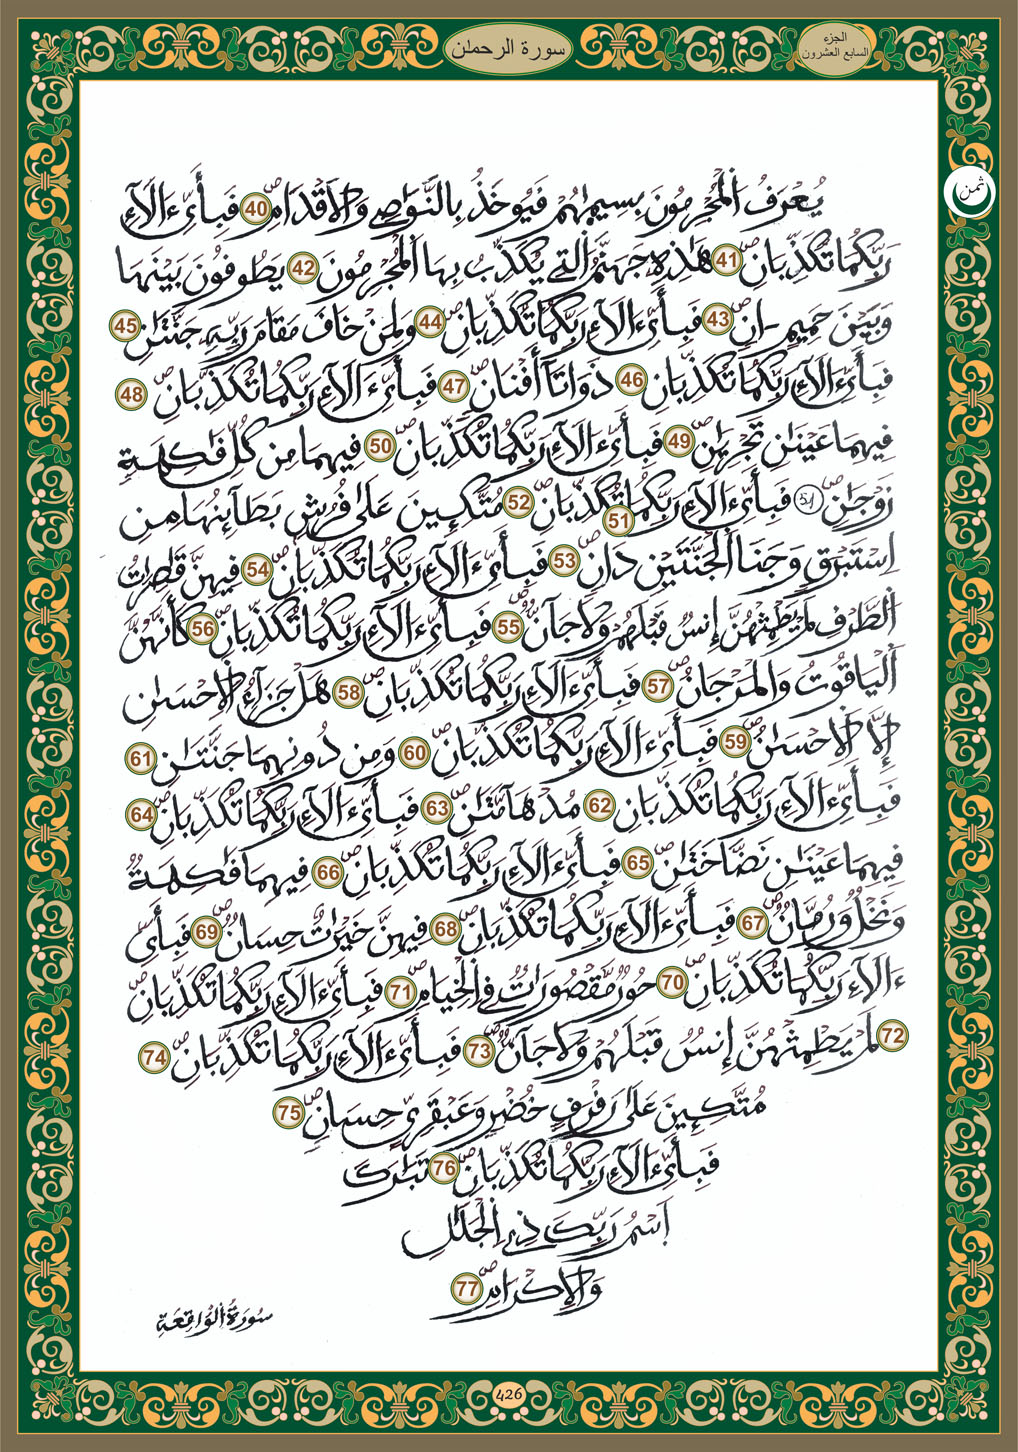 سورة الرحمٰن
الجزء
السابع العشرون
ثمن
يُعْرَفُ اُ۬لْمُجْرِمُونَ بِسِيمٰهُمْ فَيُوخَذُ بِالنَّوَٰصِے وَالَاقْدَامِۖ 40 فَبِأَيِّ ءَالَآءِ
رَبِّكُمَا تُكَذِّبَانِۖ 41 هَٰذِهِۦ جَهَنَّمُ اُ۬لتِے يُكَذِّبُ بِهَا اَ۬لْمُجْرِمُونَ 42 يَطُوفُونَ بَيْنَهَا
وَبَيْنَ حَمِيمٍ اٰنٖۖ 43 فَبِأَيِّ ءَالَآءِ رَبِّكُمَا تُكَذِّبَانِۖ 44 وَلِمَنْ خَافَ مَقَامَ رَبِّهِۦ جَنَّتَٰنِۖ 45
فَبِأَيِّ ءَالَآءِ رَبِّكُمَا تُكَذِّبَانِۖ 46 ذَوَاتَآ أَفْنَانٖۖ 47 فَبِأَيِّ ءَالَآءِ رَبِّكُمَا تُكَذِّبَانِۖ 48
فِيهِمَا عَيْنَٰنِ تَجْرِيَٰنِۖ 49 فَبِأَيِّ ءَالَآءِ رَبِّكُمَا تُكَذِّبَانِۖ 50 فِيهِمَا مِن كُلِّ فَٰكِهَةٖ
زَوْجَٰنِۖ 51 فَبِأَيِّ ءَالَآءِ رَبِّكُمَا تُكَذِّبَانِۖ 51 52 مُتَّكِـِٕينَ عَلَىٰ فُرُشِۢ بَطَآئِنُهَا مِنِ
اِسْتَبْرَقٖ وَجَنَا اَ۬لْجَنَّتَيْنِ دَانٖۖ 53 فَبِأَيِّ ءَالَآءِ رَبِّكُمَا تُكَذِّبَانِۖ 54 فِيهِنَّ قَٰصِرَٰتُ
اُ۬لطَّرْفِ لَمْ يَطْمِثْهُنَّ إِنسٞ قَبْلَهُمْ وَلَا جَآنّٞۖ 55 فَبِأَيِّ ءَالَآءِ رَبِّكُمَا تُكَذِّبَانِۖ 56 كَأَنَّهُنَّ
اَ۬لْيَاقُوتُ وَالْمَرْجَانُۖ 57 فَبِأَيِّ ءَالَآءِ رَبِّكُمَا تُكَذِّبَانِۖ 58 هَلْ جَزَآءُ اُ۬لِاحْسَٰنِ
إِلَّا اَ۬لِاحْسَٰنُۖ 59 فَبِأَيِّ ءَالَآءِ رَبِّكُمَا تُكَذِّبَانِۖ 60 وَمِن دُونِهِمَا جَنَّتَٰنِۖ 61
فَبِأَيِّ ءَالَآءِ رَبِّكُمَا تُكَذِّبَانِ 62 مُدْهَآمَّتَٰنِۖ 63 فَبِأَيِّ ءَالَآءِ رَبِّكُمَا تُكَذِّبَانِۖ 64
فِيهِمَا عَيْنَٰنِ نَضَّاخَتَٰنِۖ 65 فَبِأَيِّ ءَالَآءِ رَبِّكُمَا تُكَذِّبَانِۖ 66 فِيهِمَا فَٰكِهَةٞ
وَنَخْلٞ وَرُمَّانٞۖ 67 فَبِأَيِّ ءَالَآءِ رَبِّكُمَا تُكَذِّبَانِۖ 68 فِيهِنَّ خَيْرَٰتٌ حِسَانٞۖ 69 فَبِأَيِّ
ءَالَآءِ رَبِّكُمَا تُكَذِّبَانِۖ 70 حُورٞ مَّقْصُورَٰتٞ فِے اِ۬لْخِيَامِۖ 71 فَبِأَيِّ ءَالَآءِ رَبِّكُمَا تُكَذِّبَانِۖ
72 لَمْ يَطْمِثْهُنَّ إِنسٞ قَبْلَهُمْ وَلَا جَآنّٞۖ 73 فَبِأَيِّ ءَالَآءِ رَبِّكُمَا تُكَذِّبَانِۖ 74
مُتَّكِـِٕينَ عَلَىٰ رَفْرَفٍ خُضْرٖ وَعَبْقَرِيٍّ حِسَانٖۖ 75
فَبِأَيِّ ءَالَآءِ رَبِّكُمَا تُكَذِّبَانِۖ 76 تَبَٰرَكَ
اَ۪سْمُ رَبِّكَ ذِے اِ۬لْجَلَٰلِ
وَالِاكْرَامِۖ 77
سُورَةُ اُ۬لْوَاقِعَةِ
426